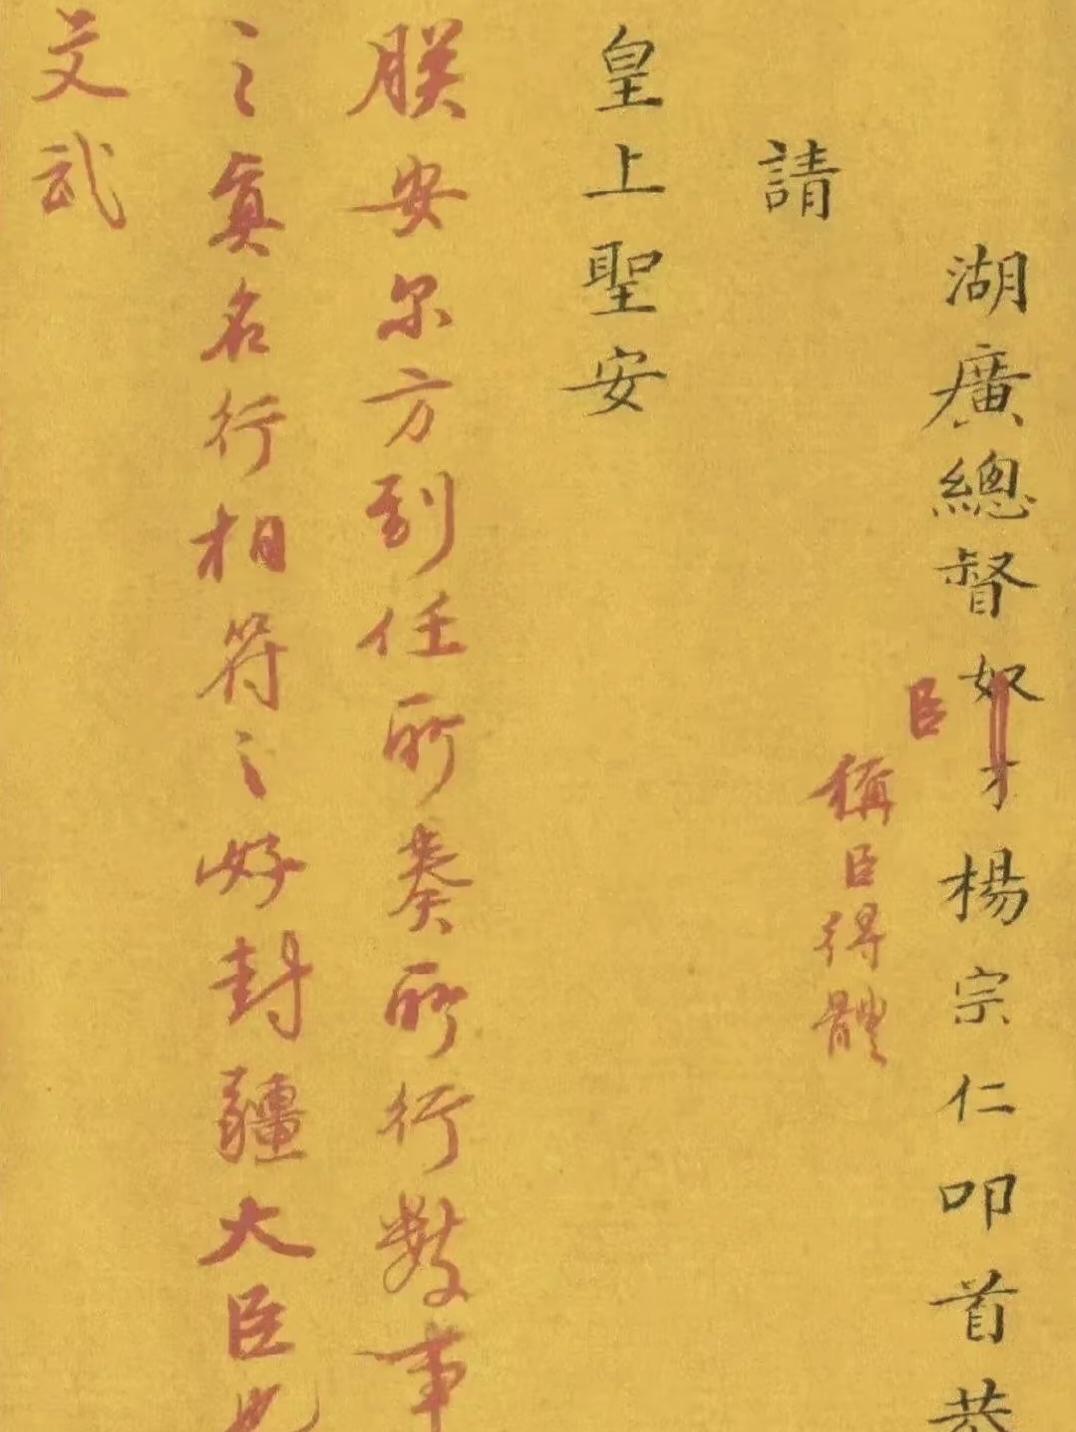 湖廣總督奴才楊宗仁叩首恭
臣
稱臣得體
請
皇上聖安
朕安尔方到任所奏所行數事
之真名行相符之好封疆大臣也
文武